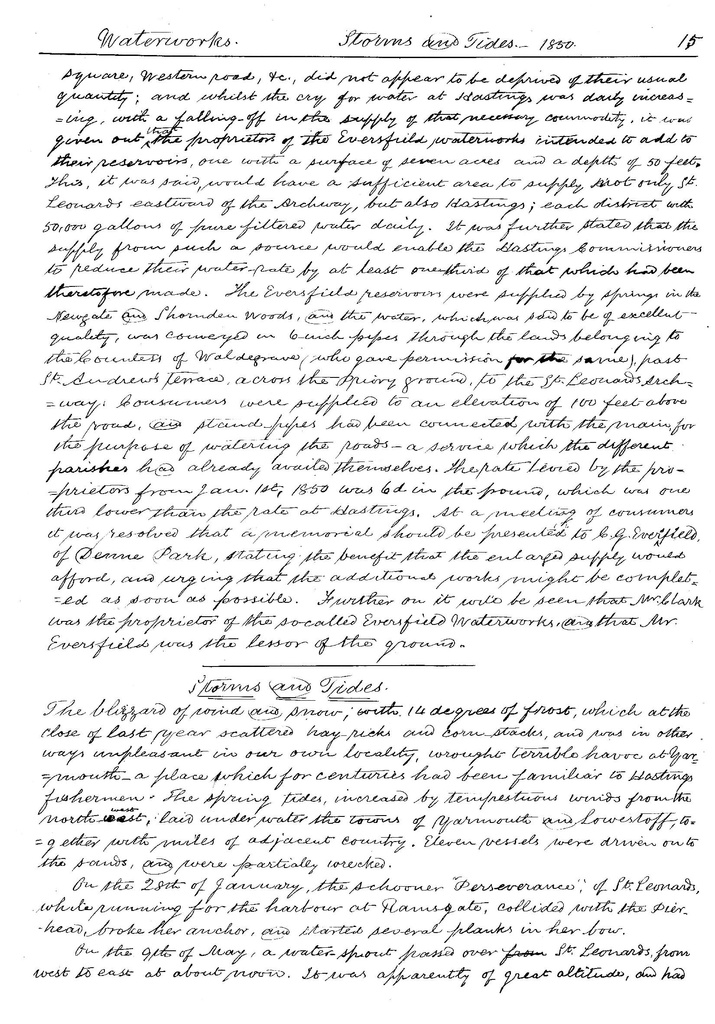 Waterworks. Storms and Tides. — 1850. 15
square, Western road, &c., did not appear to be deprived of their usual
quantity; and whilst the cry for water at Hastings was daily increas-
=ing, with a falling-off in the supply of that necessary commodity, it was
given out that the proprietors of the Eversfield waterworks intended to add to
their reservoirs, one with a surface of seven acres and a depth of 50 feet.
This, it was said, would have a sufficient area to supply not only St.
Leonards eastward of the Archway, but also Hastings; each district with
50,000 gallons of pure filtered water daily. It was further stated that the
supply from such a source would enable the Hastings Commissioners
to reduce their water-rate by at least one-third of that which had been
theretofore made. The Eversfield reservoirs were supplied by springs in the
Newgate and Shornden Woods, and the water, which was said to be of excellent
quality, was conveyed in 6 inch pipes through the lands belonging to
the Countess of Waldegrave (who gave permission for the same), past
St. Andrew's terrace, across the Priory ground, to the St. Leonards Arch-
=way. Consumers were supplied to an elevation of 100 feet above
the road, and stand-pipes had been connected with the main, for
the purpose of watering the roads — a service which the different
parishes had already availed themselves. The rate levied by the pro-
=prietors from Jan. 1st, 1850 was 6d in the pound, which was one
third lower than the rate at Hastings. At a meeting of consumers
it was resolved that a memorial should be presented to C. G. Eversfield,
of Denne Park, stating the benefit that the enlarged supply would
afford, and urging that the additional works might be complet-
=ed as soon as possible. Further on it will be seen that Mr. Clark
was the proprietor of the so called Eversfield Waterworks, and that Mr.
Eversfield was the lessor of the ground.
Storms and Tides.
The blizzard of wind and snow, with 14 degrees of frost, which at the
close of last year scattered hay-ricks and corn-stacks, and was in other
ways unpleasant in our own locality, wrought terrible havoc at Yar-
=mouth — a place which for centuries had been familiar to Hastings
fishermen. The spring tides, increased by tempestuous winds from the
north west, laid under water the towns of Yarmouth and Lowestoff, to-
=gether with miles of adjacent country. Eleven vessels were driven on to
the sands, and were partially wrecked.
On the 28th of January, the schooner "Perseverance", of St. Leonards,
while running for the harbour at Ramsgate, collided with the Pier-
-head, broke her anchor, and started several planks in her bow.
On the 9th of May, a water-spout passed over from St. Leonards, from
west to east at about noon. It was apparently of great altitude, and had